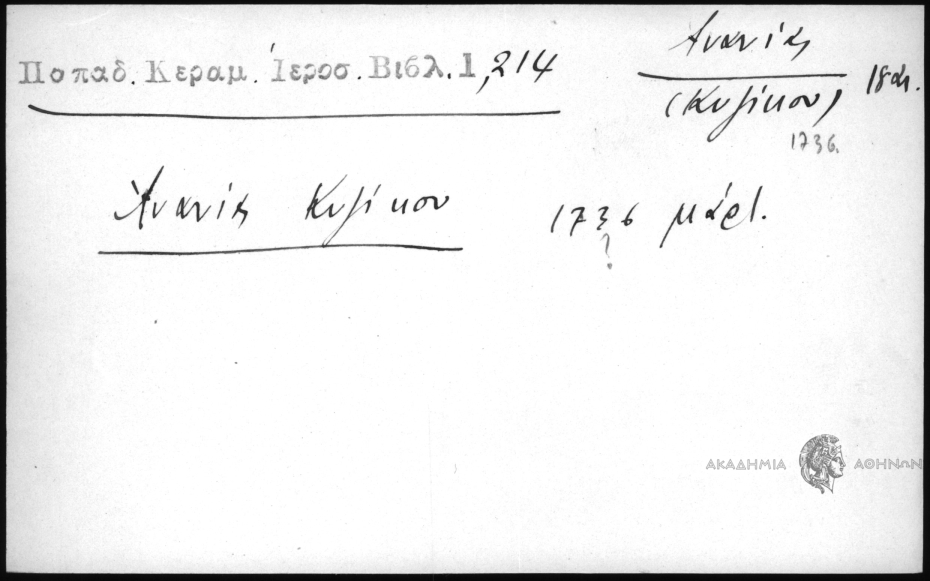 Παπαδ. Κεραμ. Ἱεροσ. Βιβλ. 1,214
Ἀνανίας
(Κυζίκου)
18 αι.
1736.
Ἀνανίας Κυζίκου 1736 μάρτ.
?
ΑΚΑΔΗΜΙΑ ΑΘΗΝΩΝ